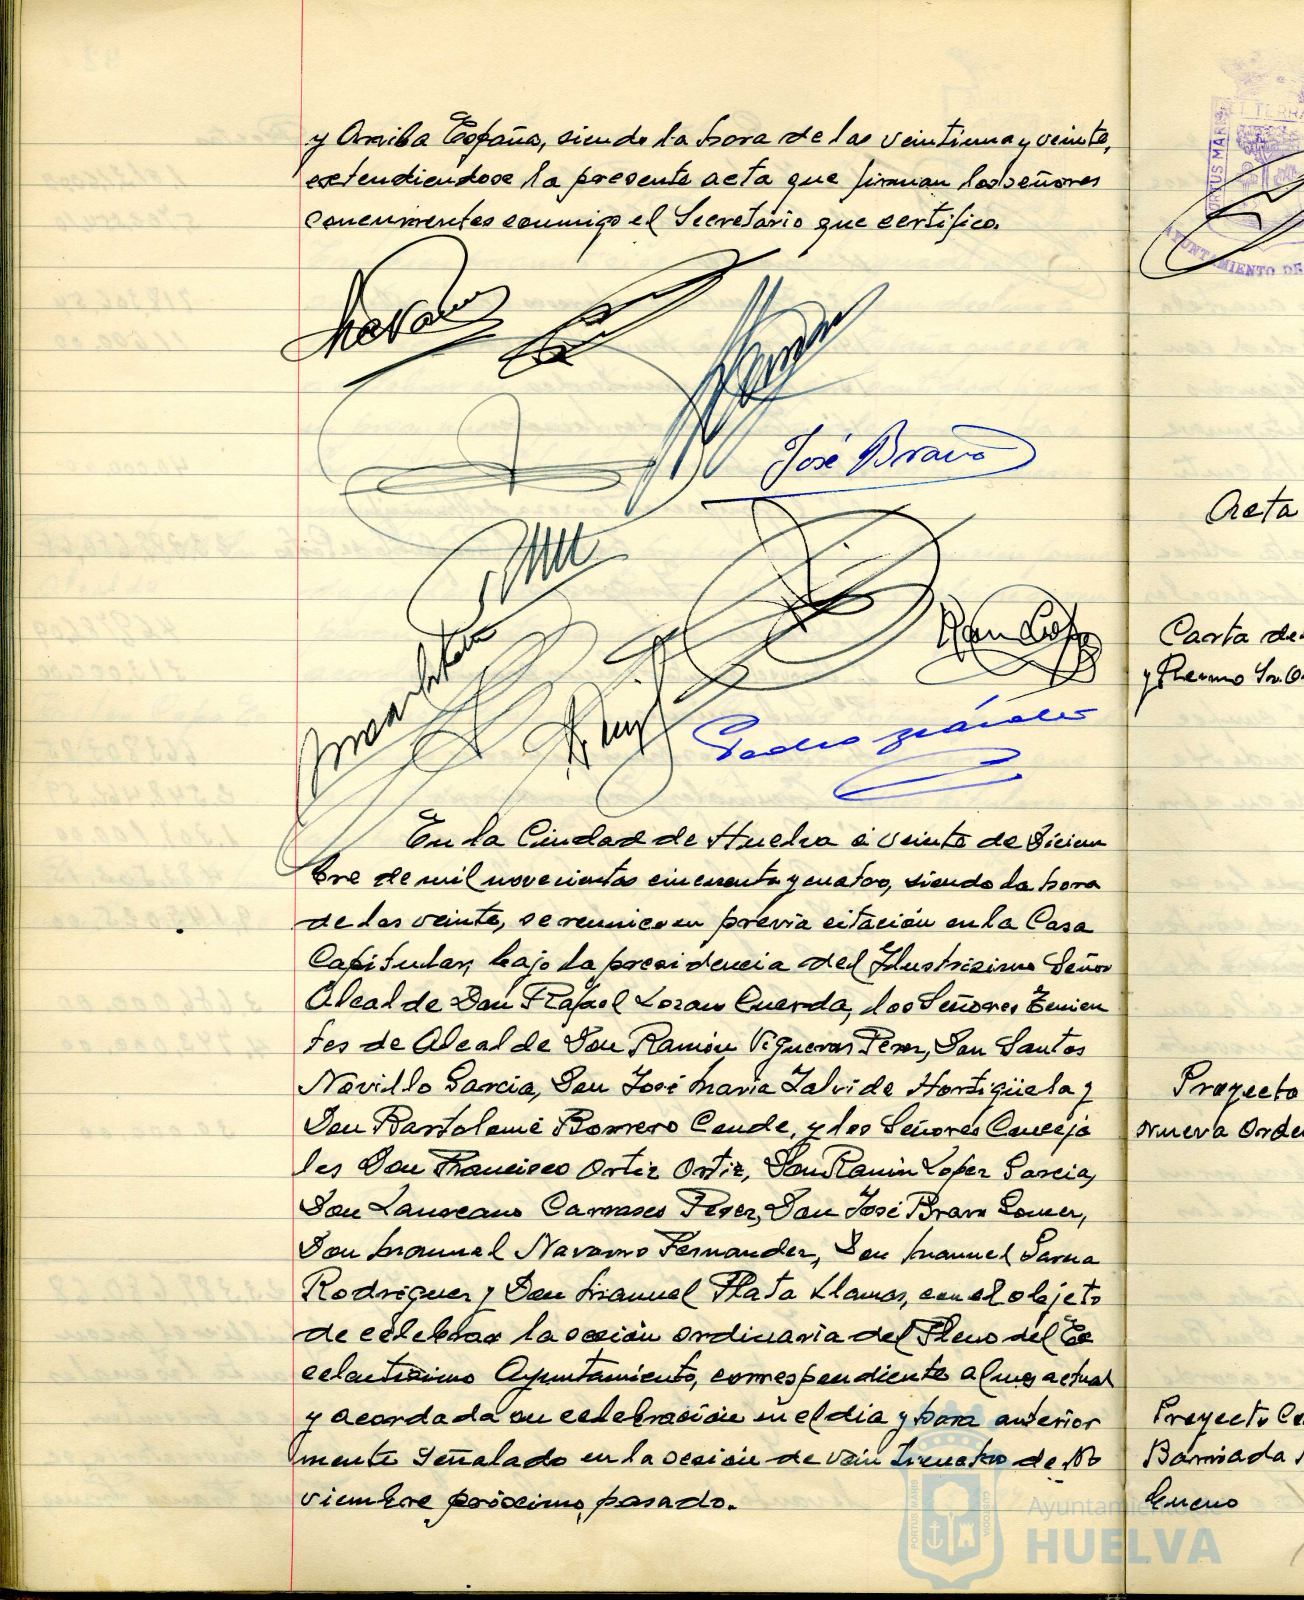 y Arriba España, siendo la hora de las veintiuna y veinte,
extendiendose la presente acta que firman los señores
concurrentes conmigo el Secretario que certifico.
José Bravo
En la Ciudad de Huelva a veinte de Diciem
bre de mil novecientos cincuenta y cuatro, siendo la hora
de las veinte, se reunieron previa citación en la Casa
Capitular, bajo la presidencia del Ilustrisimo Señor
Alcalde Don Rafael Lozano Cuerda, los Señores Tenien
tes de Alcalde Don Ramón Vigueras Perez, Don Santos
Novillo Garcia, Don José María Zalvide Hortigüela y
Don Bartolomé Borrero Conde, y los Señores Conceja
les Don Francisco Ortiz Ortiz, Don Ramón Lopez Garcia,
Don Laureano Carrasco Perez, Don José Bravo Gomez,
Don Manuel Navarro Fernandez, Don Manuel Garcia
Rodriguez y Don Manuel Plata Llamas, con el objeto
de celebrar la sesión ordinaria del Pleno del Ex
celentisimo Ayuntamiento, correspondiente al mes actual
y acordada su celebración en el dia y hora anterior
mente señalado en la sesión de veinticuatro de No
viembre próximo pasado.
PORTUS MARIS ET TERRA
AYUNTAMIENTO DE
Acta
Carta de
Proyecto
nueva Orde
Proyecto
Barriada
PORTUS MARIS CUSTODIA
Ayuntamiento de
HUELVA